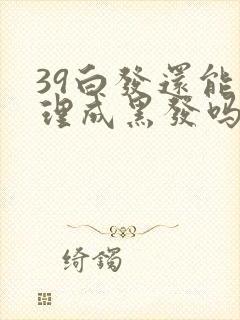 39白發還能
理成黑發吗
绮鐲